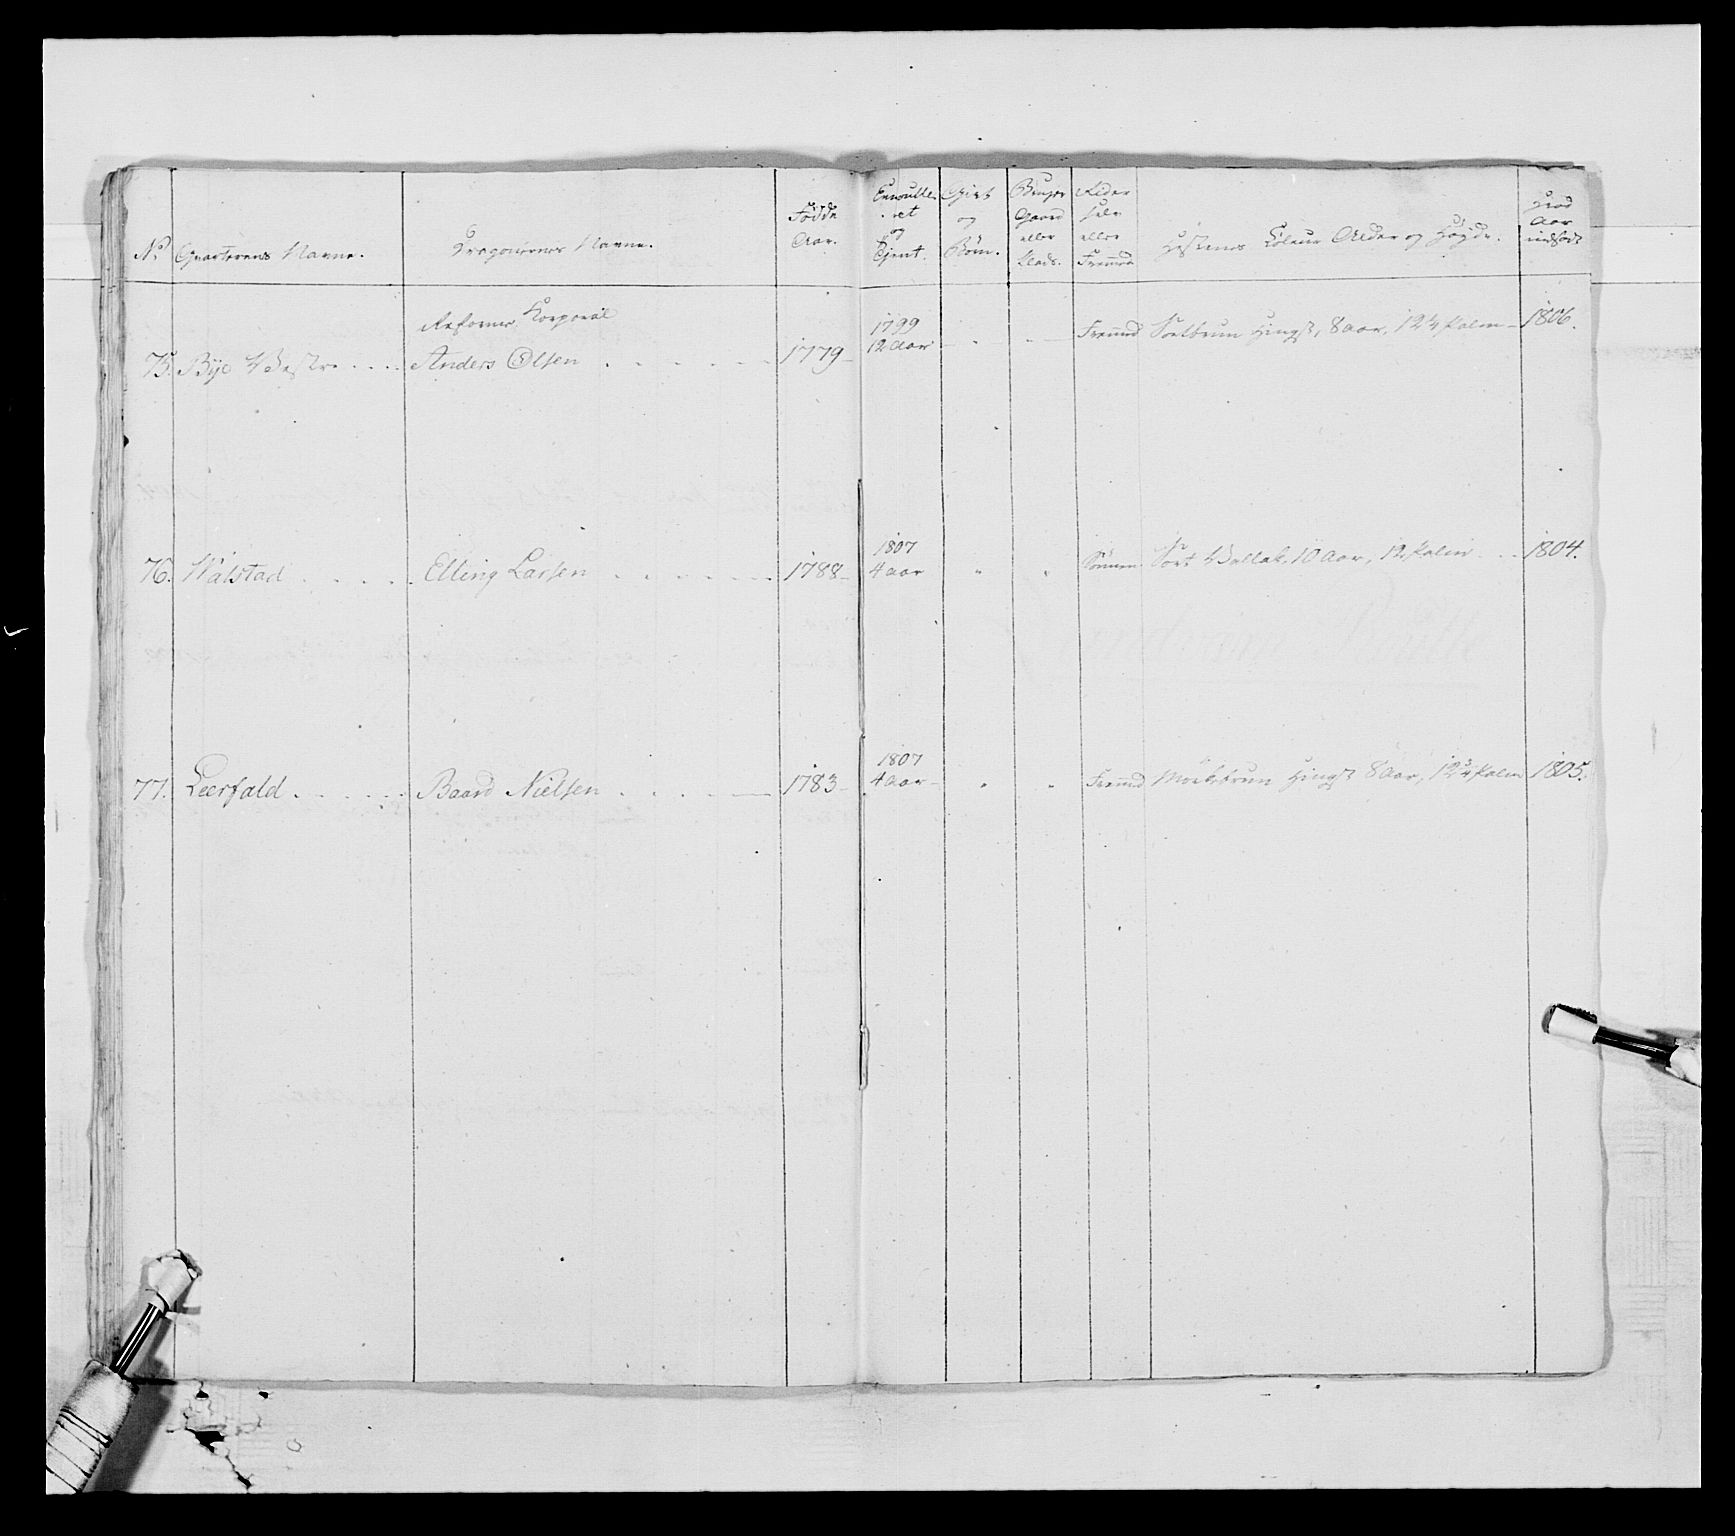 No Qvarterens Navne. Dragonernes Navne. Födde Aar. Enroulleret og Tjent. Gift og Börn. Bruger Gaard eller Plads. Rider selv eller Fremmed Hestens Coleur Alder og Höyde. Hvad Aar indsadt
Reformer. Korporal
75. Bye Vestre . . . . Anders Olsen . . . . . . 1779 1799 12 Aar Fremmed Sortbrun Hingst, 8 Aar, 12 1/4 Palm 1806.
76. Walstad . . . . . Elling Larsen . . . . . . 1788 1807 4 aar " " Sönnen Sort Vallak, 10 Aar, 12 Palm . . 1804.
77. Leerfald . . . . . Baard Nielsen . . . . . 1783 1807 4 aar " " Fremmed Mörkbrun Hingst 8 Aar, 12 3/4 Palm 1805.